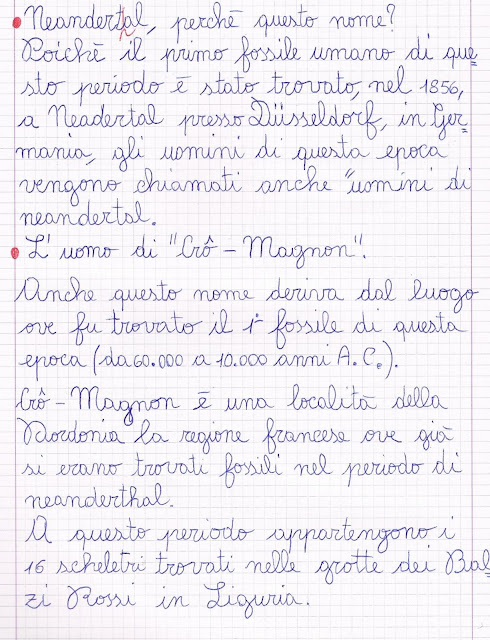 Neandertal, perchē questo nome?
Poichē il primo fossile umano di que=
sto periodo ē stato trovato, nel 1856,
a Neadertal presso Düsseldorf, in Ger=
mania, gli uomini di questa epoca
vengono chiamati anche "uomini di
neandertal.
L'uomo di "Crô-Magnon".
Anche questo nome deriva dal luogo
ove fu trovato il 1° fossile di questa
epoca (da 60.000 a 10.000 anni A.C.).
Crô-Magnon ē una località della
Dordonia la regione francese ove già
si erano trovati fossili nel periodo di
neanderthal.
A questo periodo appartengono i
16 scheletri trovati nelle grotte dei Bal=
zi Rossi in Liguria.